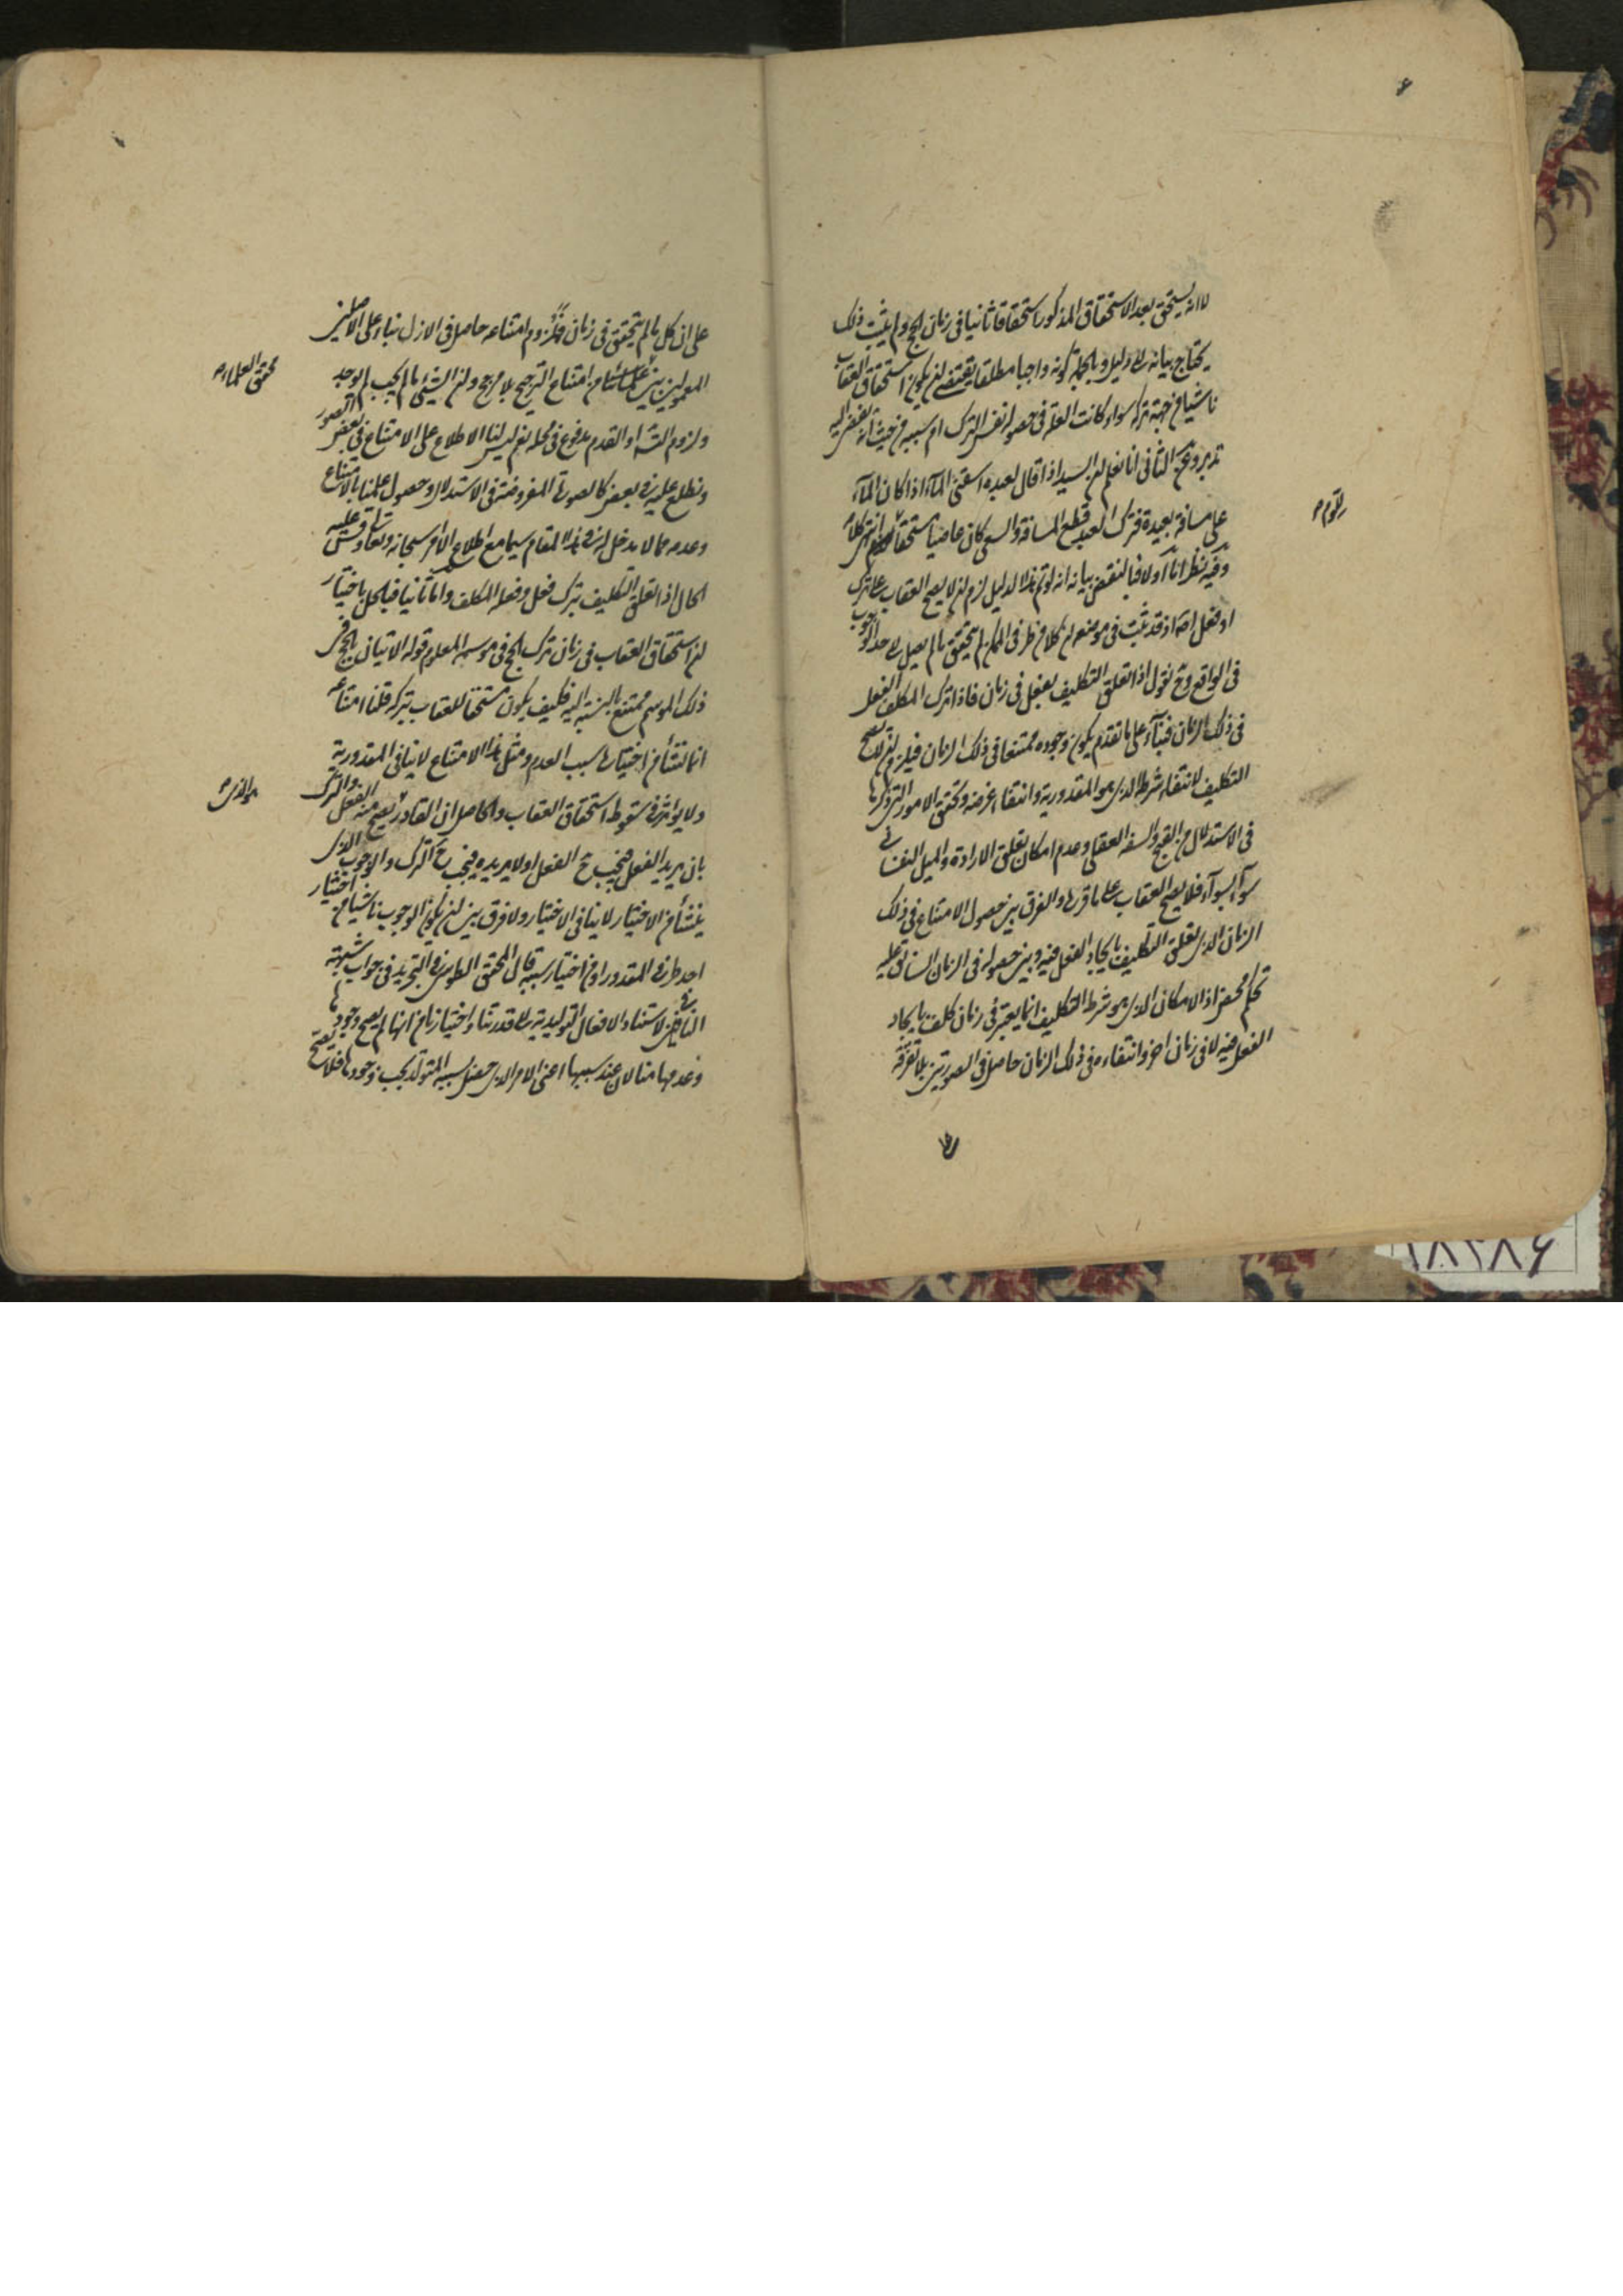 ۶
لا انه يستحق بعد الاستحقاق المذكور استحقاقا ثانيا في زمان الحج ولم يثبت ذلك
يحتاج بيانه الى دليل وبالجملة كونه واجبا مطلقا يقتضي ان يكون استحقاق العقاب
ناشيا من جهة تركه سواء كانت العلة في حصوله نفس الترك ام سببه من حيث انه يفضي اليه
تدبر وعن الثاني انا نعلم ان السيد اذا قال لعبده اسقني الماء اذا كان الماء
على مسافة بعيدة فترك العبد قطع المسافة والسعي كان عاصيا مستحقا للذم انتهى كلامه
وفيه نظر اما اولا فبالنقض بيانه انه لو تم هذا الدليل لزم ان لا يصح العقاب على ترك
او فعل اصلا اذ قد ثبت في موضعه ان كلا من طرفي الممكن لم يتحقق ما لم يصل الى حد الوجوب
في الواقع وح نقول اذا تعلق التكليف بفعل في زمان فاذا ترك المكلف الفعل
في ذلك الزمان فبناء على ما تقدم يكون وجوده ممتنعا في ذلك الزمان فيلزم ان لا يصح
التكليف لانتفاء شرطه الذي هو المقدورية وانتفاء غرضه وتحقق الامور التي ذكرها
في الاستدلال من القبح والسفه العقلي وعدم امكان تعلق الارادة والميل النفساني
سواء بسواء فلا يصح العقاب على ما قررها والفرق بين حصول الامتناع في ذلك
الزمان الذي تعلق التكليف بايجاد الفعل فيه وبين حصوله في الزمان السابق عليه
تحكم محض اذ الامكان الذي هو شرط التكليف انما يعتبر في زمان كلف بايجاد
الفعل فيه لا في زمان اخر وانتفاءه في ذلك الزمان حاصل في الصورتين بلا تفرقة
على ان كل ما لم يتحقق في زمان فلزوم امتناعه حاصل في الازل بناء على الاصلين
المعمولين بين امتناع الترجيح بلا مرجح وان الشيء ما لم يجب لم يوجد
محقق العلماء
ولزوم التسـ او القدم مدفوع في محله نعم ليس لنا الاطلاع على الامتناع في بعض الصور
ونطلع عليه في بعض كالصورة المفروضة في الاستدلال وحصول علمنا بالامتناع
وعدمه مما لا مدخل له في هذا المقام سيما مع اطلاع الامر سبحانه وتعالى وقس عليه
الحال اذا تعلق التكليف بترك فعل وفعله المكلف واما ثانيا فبالحل باختيار
ان استحقاق العقاب في زمان ترك الحج في موسمه المعلوم قوله الاتيان بالحج في
ذلك الموسم ممتنع بالنسبة اليه فكيف يكون مستحقا للعقاب بتركه قلنا امتناعه
انما نشأ من اختياره سبب العدم ومثل هذا الامتناع لا ينافي المقدورية
ولا يؤثر في سقوط استحقاق العقاب والحاصل ان القادر يصح منه الفعل والترك
بان يريد الفعل فيجب ح الفعل او لا يريده فيجب ح الترك والوجوب الذي
ينشأ من الاختيار لا ينافي الاختيار ولا فرق بين ان يكون الوجوب ناشيا من اختيار
احد طرفي المقدور او من اختيار سببه قال المحقق الطوسي في التجريد في جواب شبهة
النافين لاستناد الافعال التوليدية الى قدرتنا واختيارنا من انها لم يصح وجودها
وعدمها منا لان عند سببها اعني الامر الذي حصل بسببه المتولد يجب وجودها فلا يصح